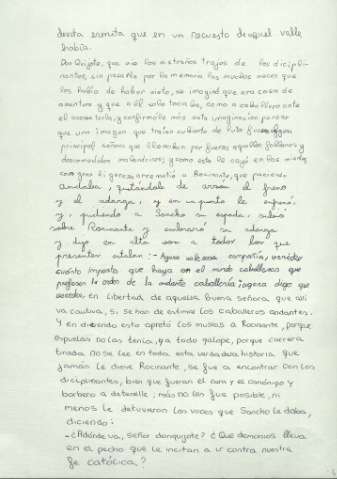 devota ermita que en un recuesto de aquel valle
había.
Don Quijote, que vio los extraños trajes de los discipli-
nantes, sin pasarle por la memoria las muchas veces que
los había de haber visto, se imaginó que era cosa de
aventura y que a él solo tocaba, como a caballero andante
el acometerla, y confirmóle más esta imaginación pensar
que una imagen que traían cubierta de luto fuese alguna
principal señora que llevaban por fuerza aquellos follones y
descomedidos malandrines; y como esto le cayó en las mientes
con gran ligereza arremetió a Rocinante, que paciendo
andaba, quitándole de arzón el freno
y el adarga, y en un punto le enfrenó
y, pidiendo a Sancho su espada, subió
sobre Rocinante y embrazó su adarga
y dijo en alta voz a todos los que
presentes estaban: - Agora valerosa compañía, veredes
cuánto importa que haya en el mundo caballeros que
profesen la orden de la andante caballería; agora digo que
veredes en libertad de aquella buena señora que allí
va cautiva, si se han de estimar los caballeros andantes.
Y en diciendo esto apretó los muslos a Rocinante, porque
espuelas no las tenía, y a todo galope, porque carrera
tirada no se lee en toda esta verdadera historia que
jamás la diese Rocinante, se fue a encontrar con los
disciplinantes, bien que fueran el cura y el canónigo y
barbero a detenelle; más no les fue posible, ni
menos le detuvieron las voces que Sancho le daba,
diciendo:
- ¿Adónde va, señor donquijote? ¿Qué demonios lleva
en el pecho que le incitan a ir contra nuestra
fe católica?